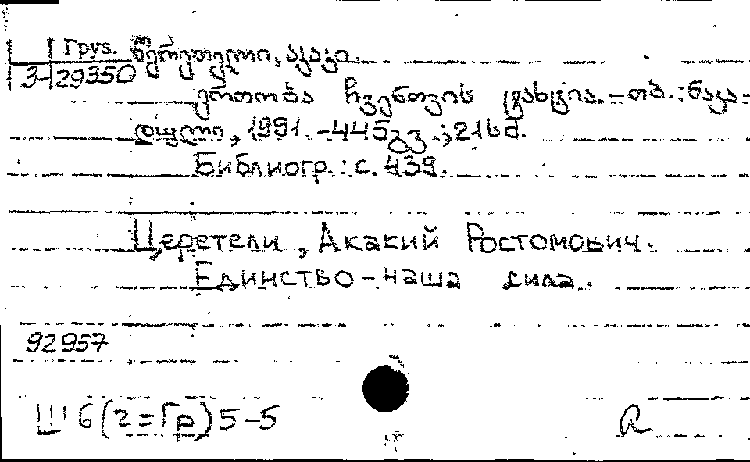 Груз. წერეთელი, აკაკი.
3-29350
ერთობა ჩვენთვის ... .-თბ.: ნაკა-
დული, 1991.-445გვ.; 21სმ.
Библиогр.: с. 439.
Церетели, Акакий Ростомович.
Единство-наша сила.
92957
Ш6(2=Гр)5-5